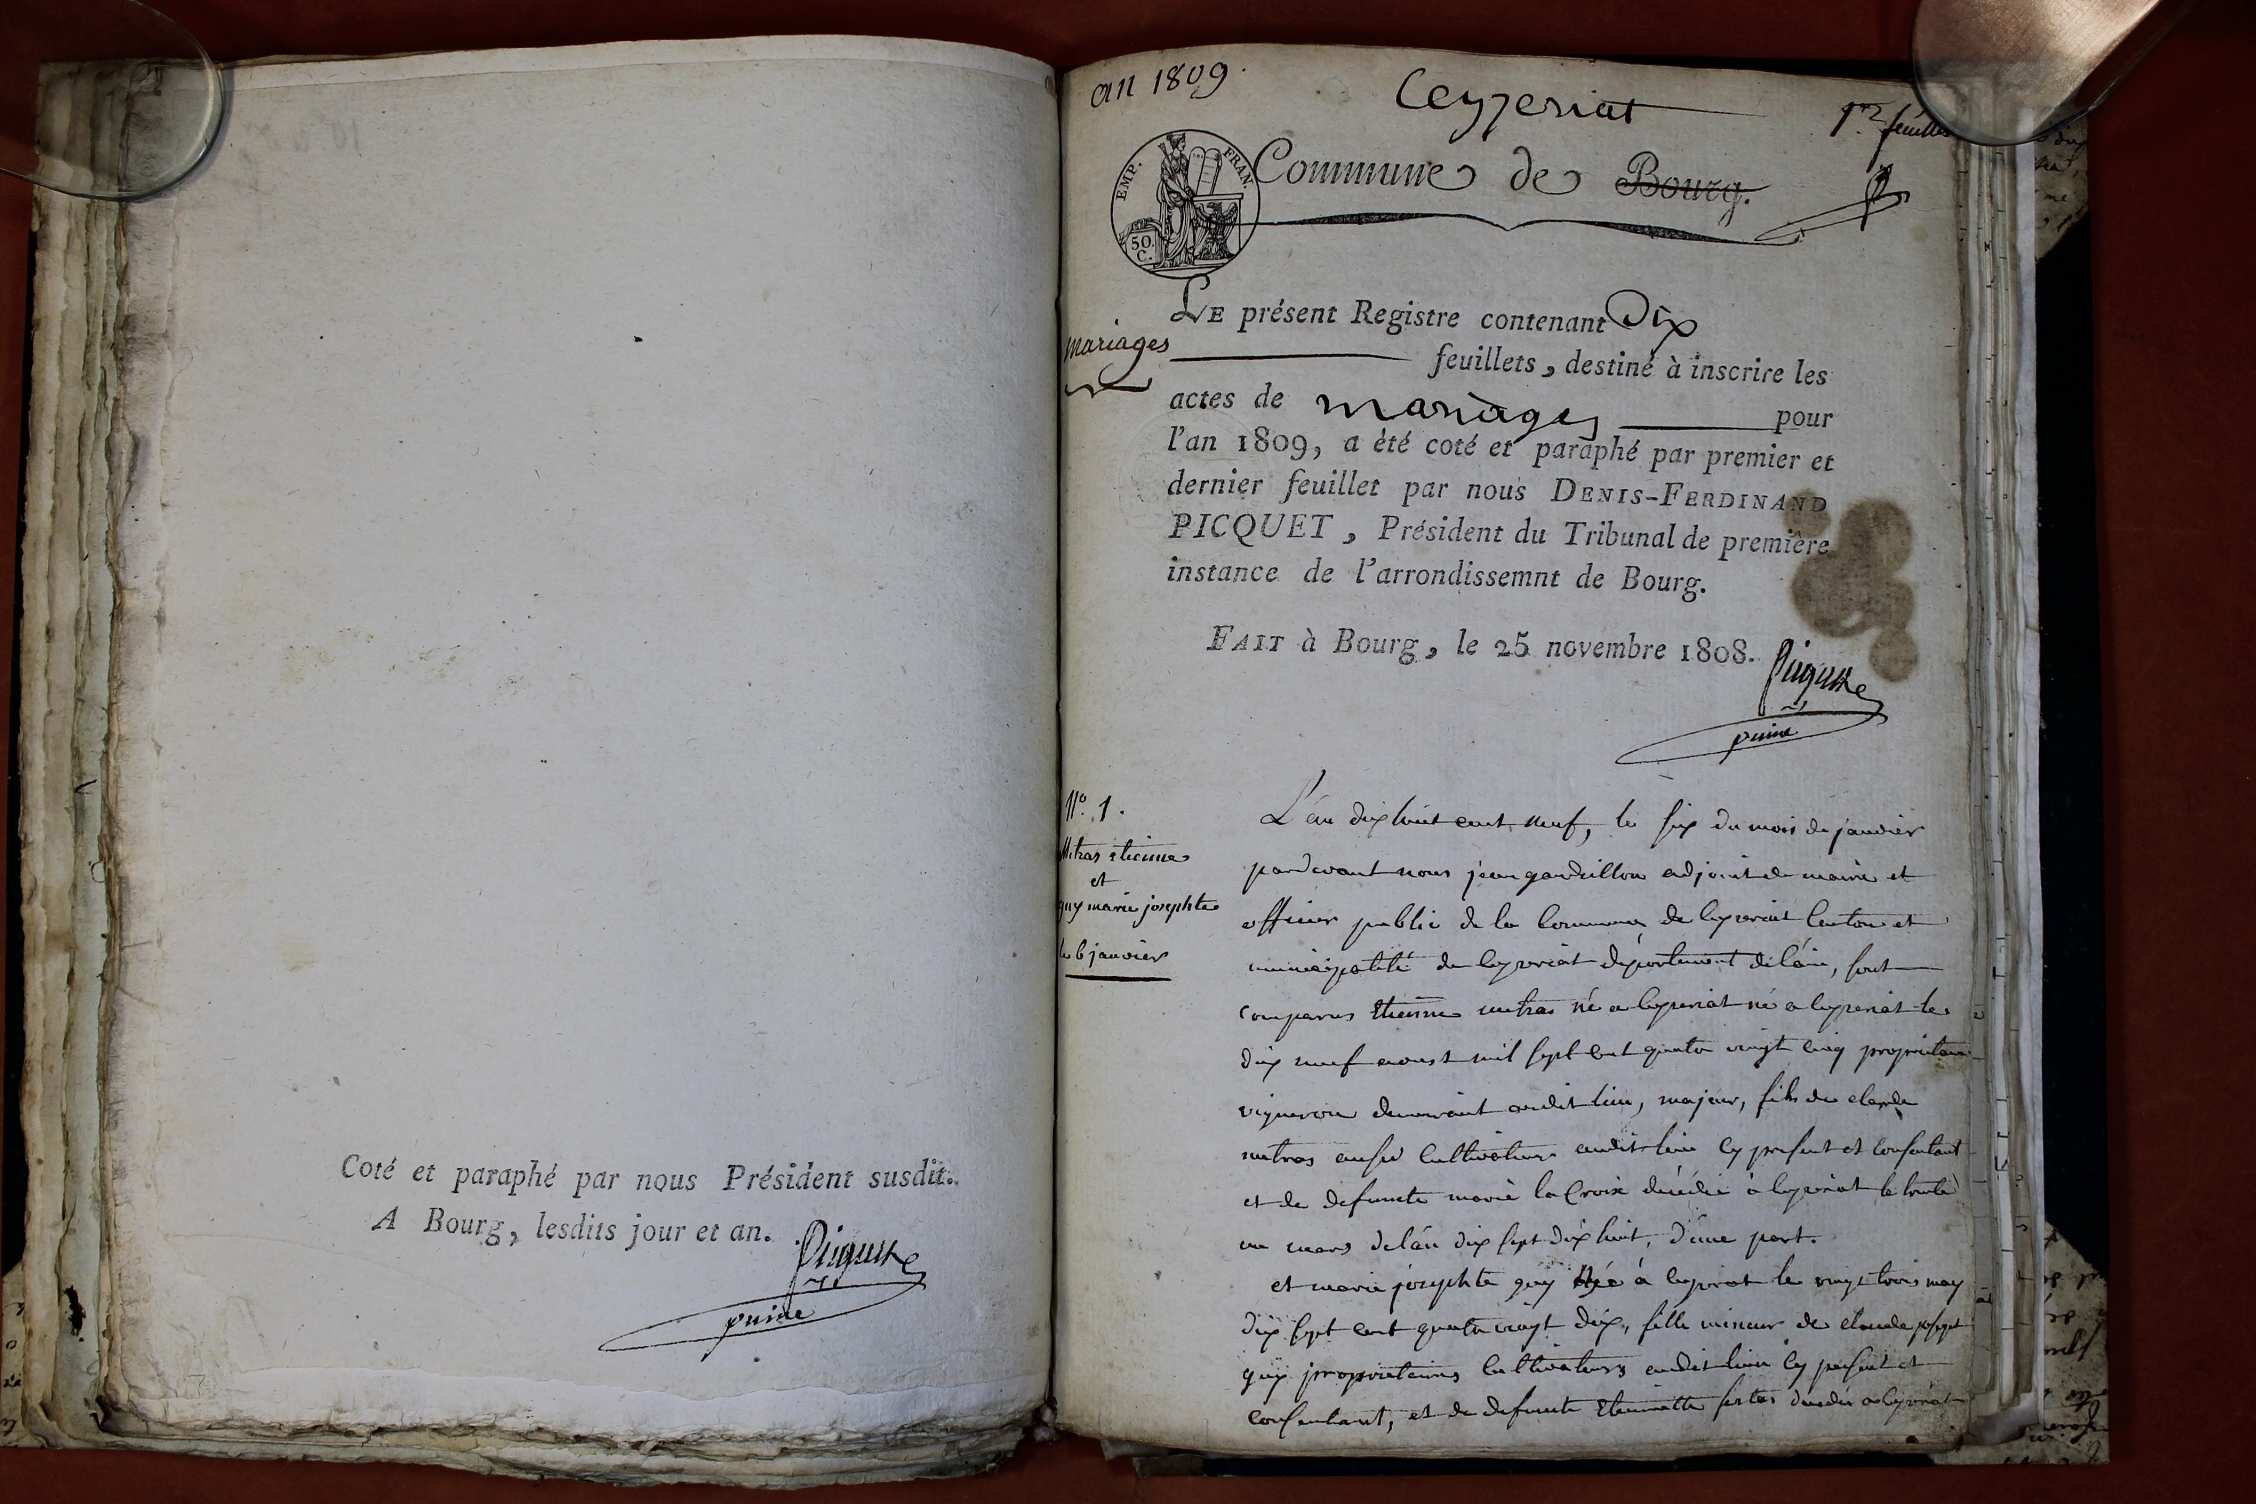 Coté et paraphé par nous Président susdit.
A Bourg, lesdits jour et an.
Picquet
an 1809.
Ceyzeriat
1er feuillet
EMP. FRAN.
50.
C.
Commune de Bourg.
LE présent Registre contenant Dix
mariages
feuillets, destiné à inscrire les
actes de mariages pour
l'an 1809, a été coté et paraphé par premier et
dernier feuillet par nous DENIS-FERDINAND
PICQUET, Président du Tribunal de première
instance de l'arrondissemnt de Bourg.
FAIT à Bourg, le 25 novembre 1808.
Picquet
N.o 1.
Mitras etienne
et
guy marie josephte
le 6 janvier
L'an dix huit cent neuf, le six du mois de janvier
pardevant nous jean gardillon adjoint de maire et
officier public de la Commune de Ceyzeriat Canton et
municipalité de Ceyzeriat département de l'ain, sont
comparus Etienne mitras né a Ceyzeriat né a Ceyzeriat le
dix neuf aoust mil sept cent quatre vingt cinq proprietaire
vigneron demeurant audit lieu, majeur, fils de claude
mitras cultivateur audit lieu cy present et consentant
et de defunte marie la Croix décédée à Ceyzeriat le trente
un mars de l'an dix sept dix huit, d'une part.
et marie josephte guy Née à Ceyzeriat le vingt trois may
dix sept cent quatre vingt dix, fille mineur de claude joseph
guy proprietaires Cultivateurs audit lieu cy present et
consentant, et de defunte Etiennette décédée a Ceyzeriat